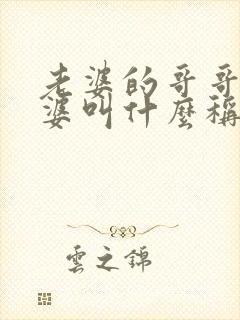 老婆的哥哥
婆叫什麼稱
雲之錦